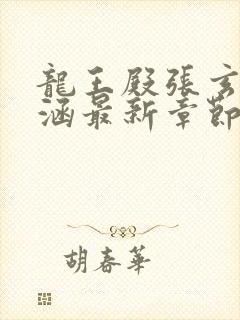 龍王殿張玄
涵最新章節
胡春華